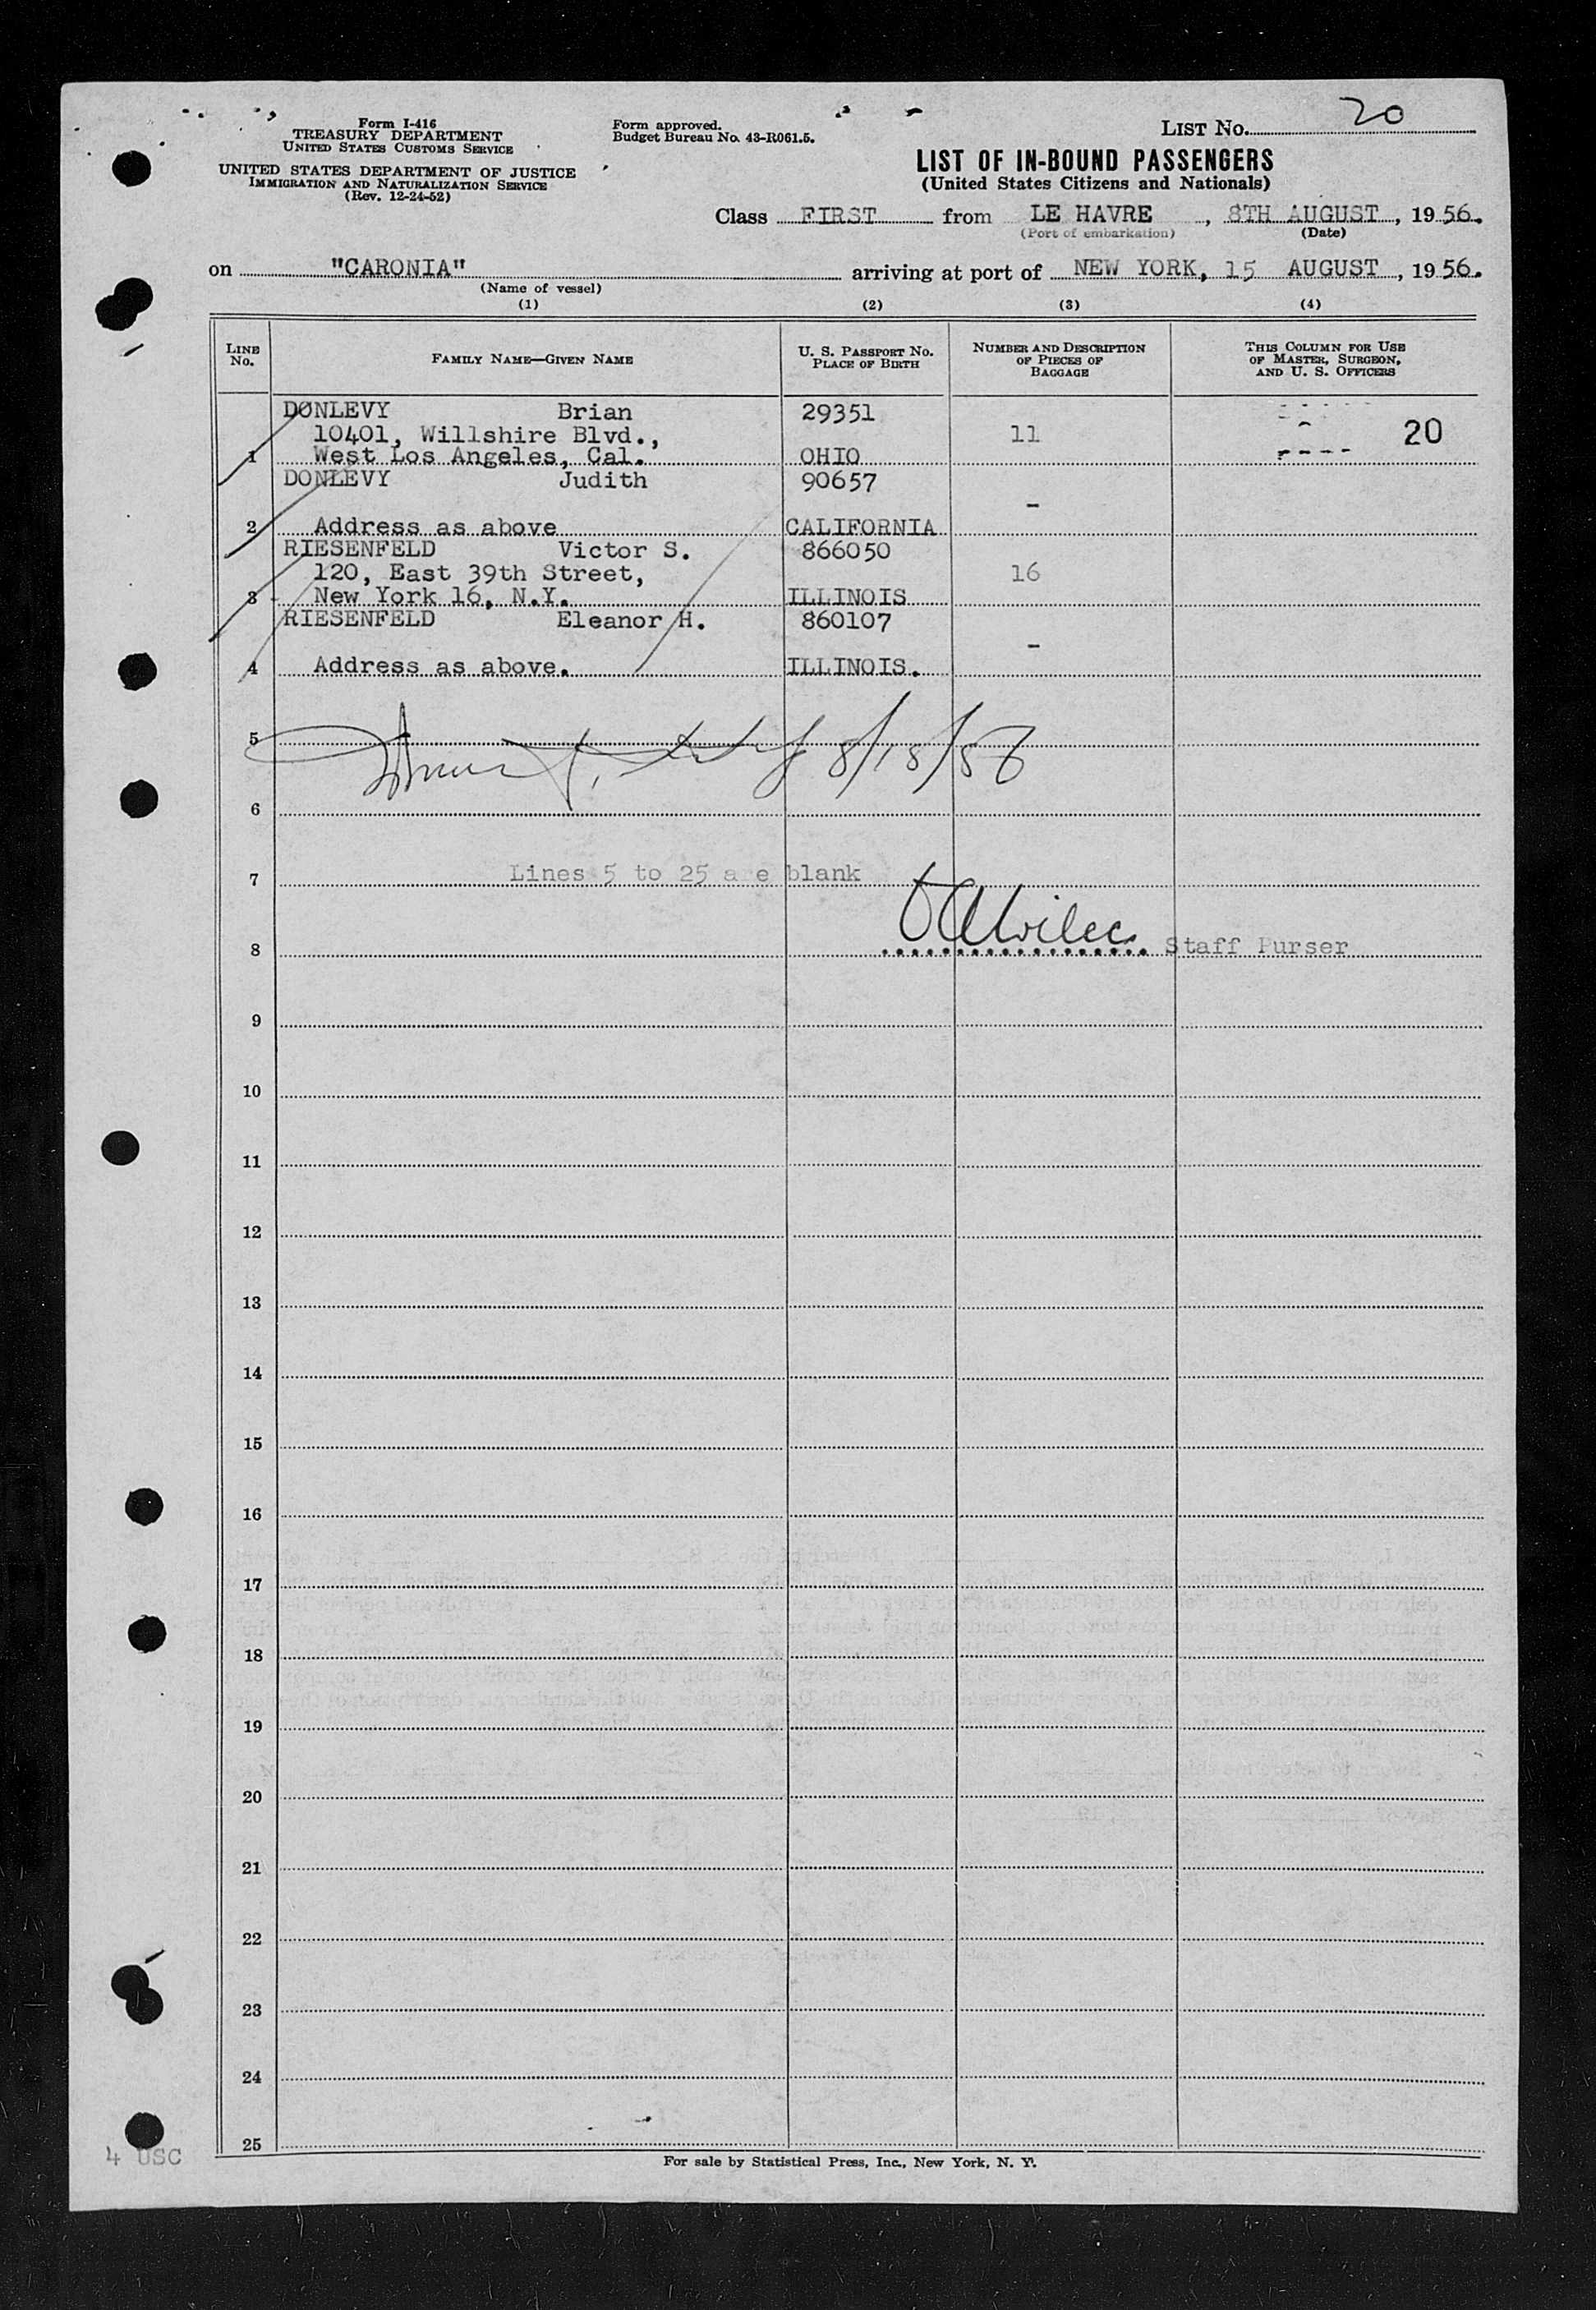 Form I-416
TREASURY DEPARTMENT
UNITED STATES CUSTOMS SERVICE
UNITED STATES DEPARTMENT OF JUSTICE
IMMIGRATION AND NATURALIZATION SERVICE
(Rev. 12-24-52)
Form approved.
Budget Bureau No. 43-R061.5.
LIST No. 20
LIST OF IN-BOUND PASSENGERS
(United States Citizens and Nationals)
Class FIRST from LE HAVRE, 8TH AUGUST, 1956.
(Port of embarkation) (Date)
on "CARONIA" arriving at port of NEW YORK, 15 AUGUST, 1956.
(Name of vessel)
(1) (2) (3) (4)
LINE No. FAMILY NAME—GIVEN NAME U. S. PASSPORT No. PLACE OF BIRTH NUMBER AND DESCRIPTION OF PIECES OF BAGGAGE THIS COLUMN FOR USE OF MASTER, SURGEON, AND U. S. OFFICERS
DONLEVY Brian 29351
10401, Willshire Blvd., 11 20
1 West Los Angeles, Cal. OHIO
DONLEVY Judith 90657
-
2 Address as above CALIFORNIA
RIESENFELD Victor S. 866050
120, East 39th Street, 16
3 New York 16, N.Y. ILLINOIS
RIESENFELD Eleanor H. 860107
-
4 Address as above. ILLINOIS.
5 8/15/56
6
7 Lines 5 to 25 are blank
8 Staff Purser
9
10
11
12
13
14
15
16
17
18
19
20
21
22
23
24
25
4 USC
For sale by Statistical Press, Inc., New York, N. Y.